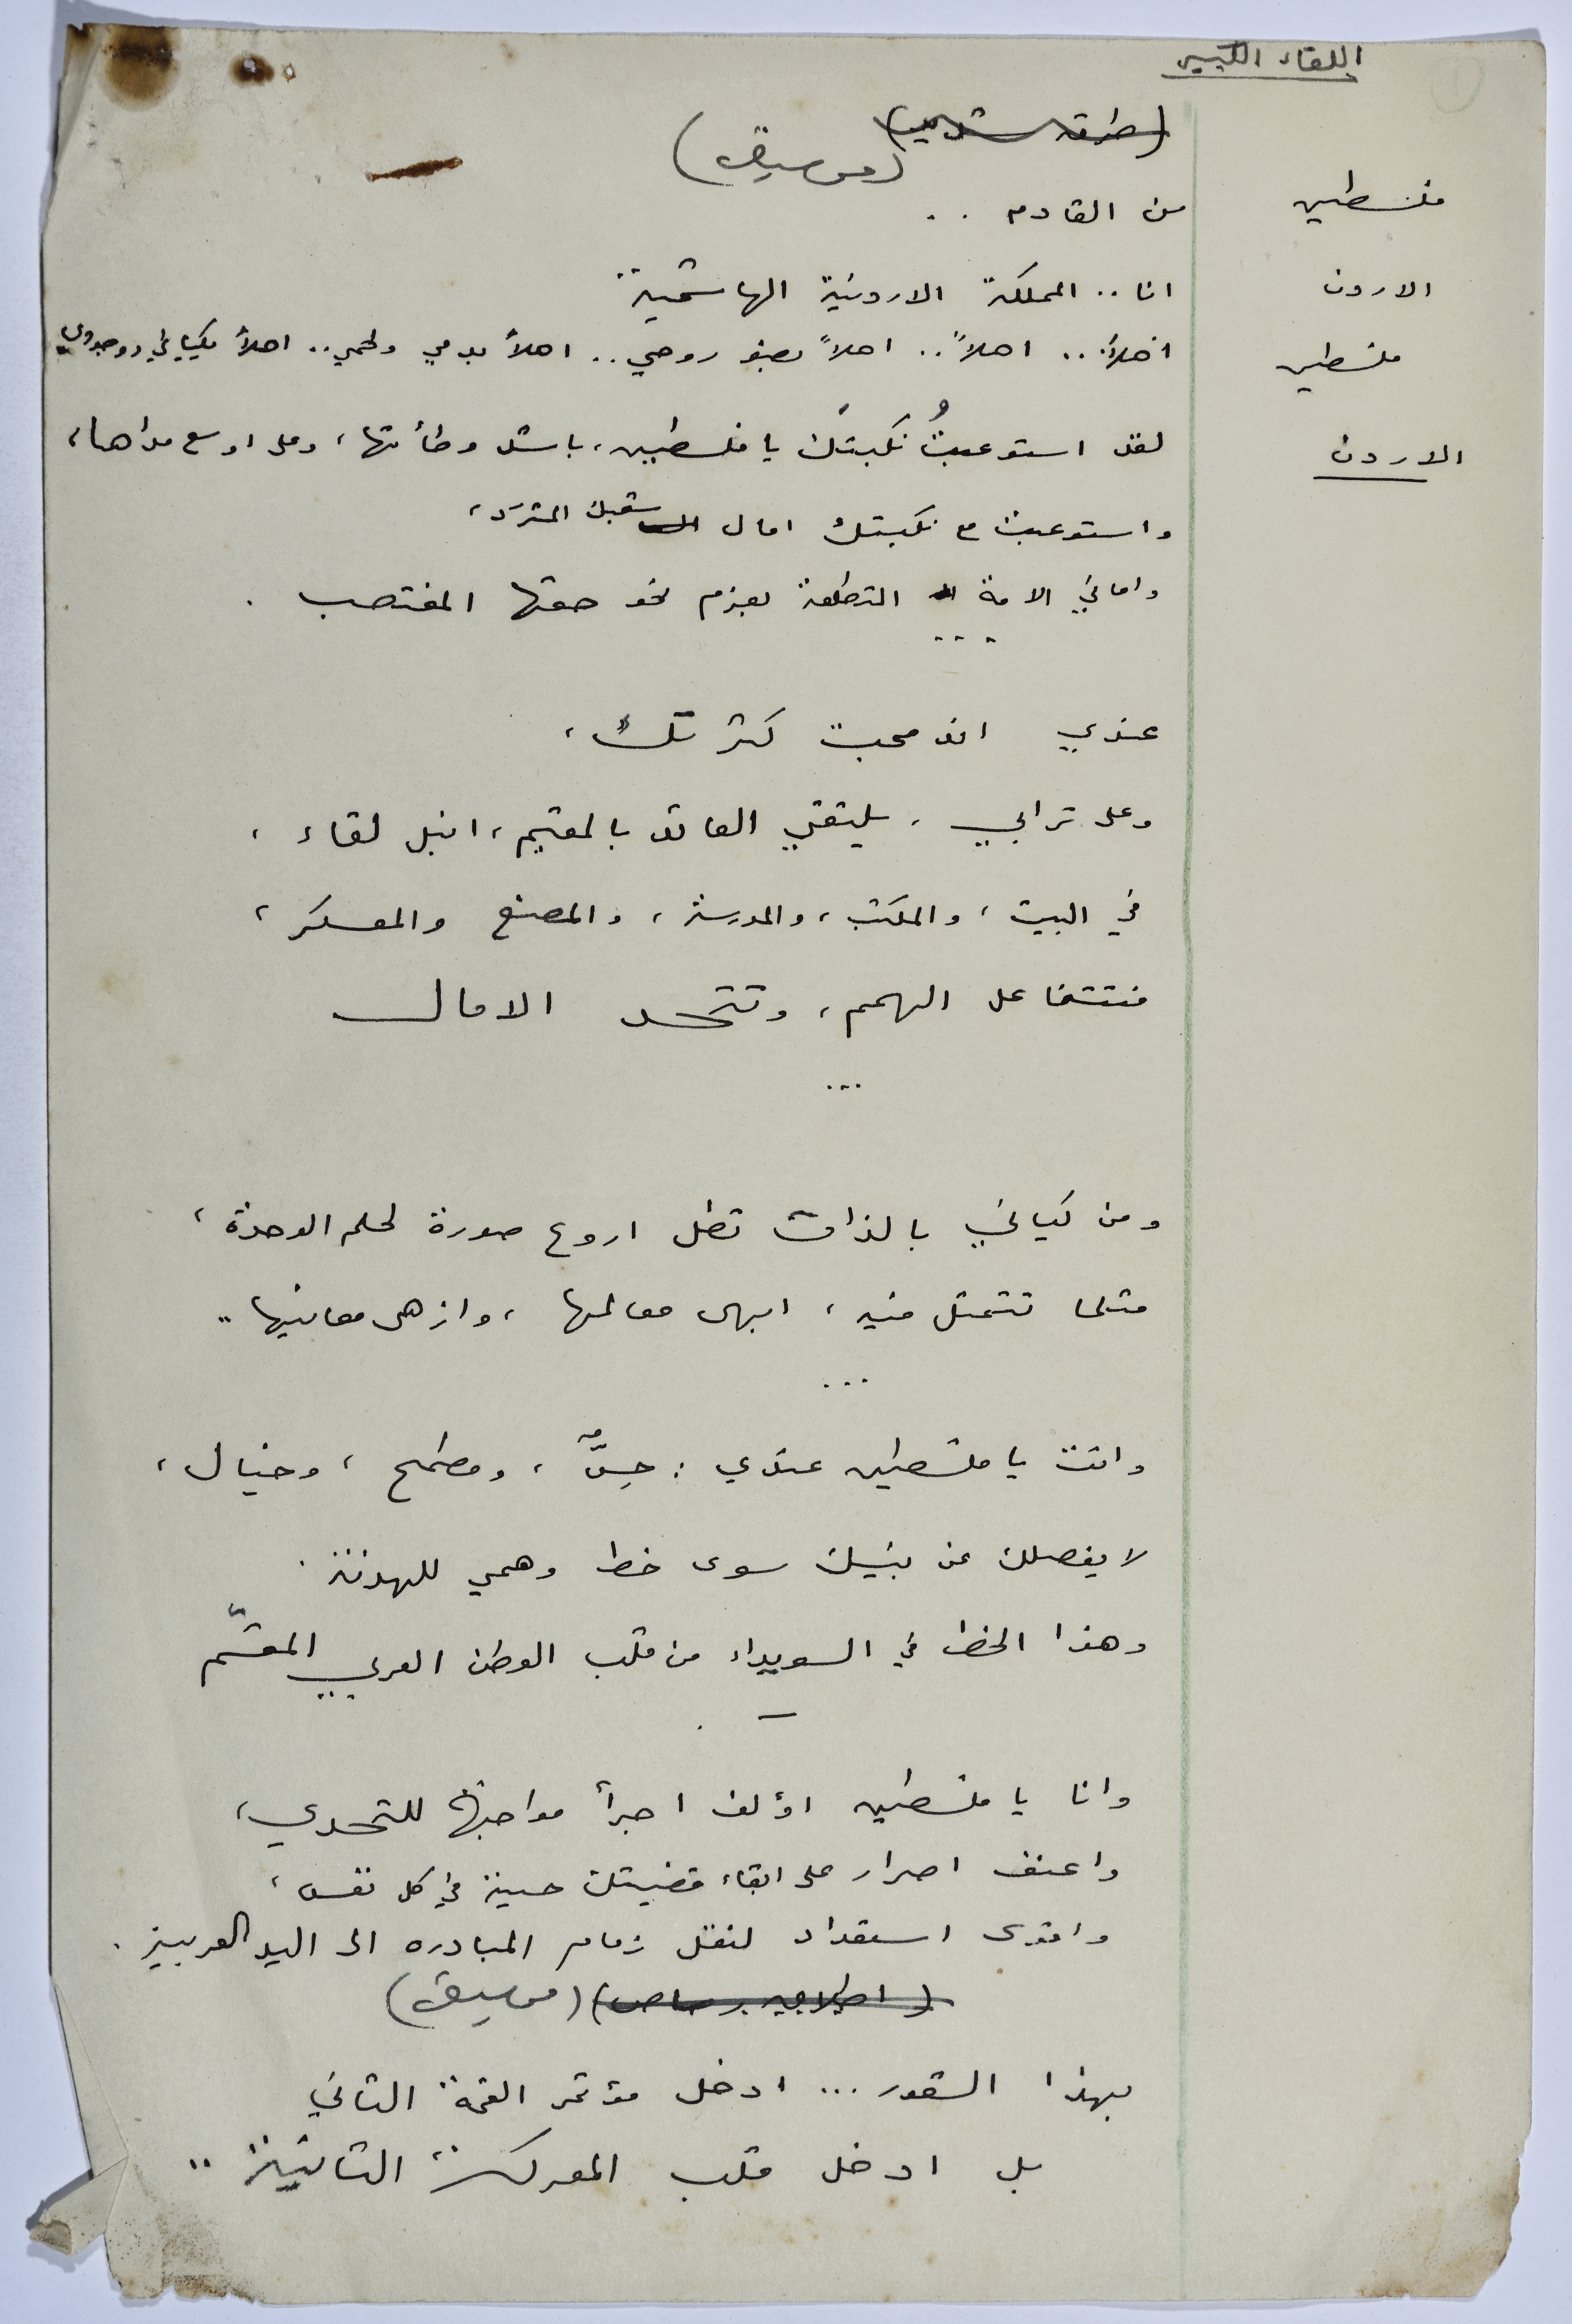 اللقاء الكبير
(موسيقى)
فلسطين من القادم ..
الاردن انا .. المملكة الاردنية الهاشمية
فلسطين اهلاً .. اهلاً .. اهلاً بصنو روحي .. اهلاً بدمي ولحمي .. اهلاً بكياني ووجودي
الاردن لقد استوعبتُ نكبتك يا فلسطين، باشد وطأتها، وعلى اوسع مداها،
واستوعبت مع نكبتك امال المستقبل المشرد،
واماني الامة المتطلعة بعزم نحو حقها المغتصب .
...
عندي اندمجت كثرتك،
وعلى ترابي، يلتقي العائد بالمقيم، انبل لقاء،
في البيت، والمكتب، والمدرسة، والمصنع والمعسكر،
فتتفاعل الهمم، وتتحد الامال
...
ومن كياني بالذات تطل اروع صورة لحلم الوحدة،
مثلما تتمثل فيه، ابهى معالمها، وازهى معانيها ..
...
وانت يا فلسطين عندي : حِسٌّ، ومطمح، وخيال،
لا يفصلك عن بنيك سوى خط وهمي للهدنة .
وهذا الخط في السويداء من قلب الوطن العربي المقسّم
وانا يا فلسطين اؤلف اجرأ مواجهة للتحدي،
واعنف اصرار على ابقاء قضيتك حية في كل نفس،
واقوى استعداد لنقل زمام المبادره الى اليد العربية .
(اطلاق رصاص) (موسيقى)
بهذا الشعور ... ادخل مؤتمر القمة الثاني
بل ادخل قلب المعركة الثانية ..